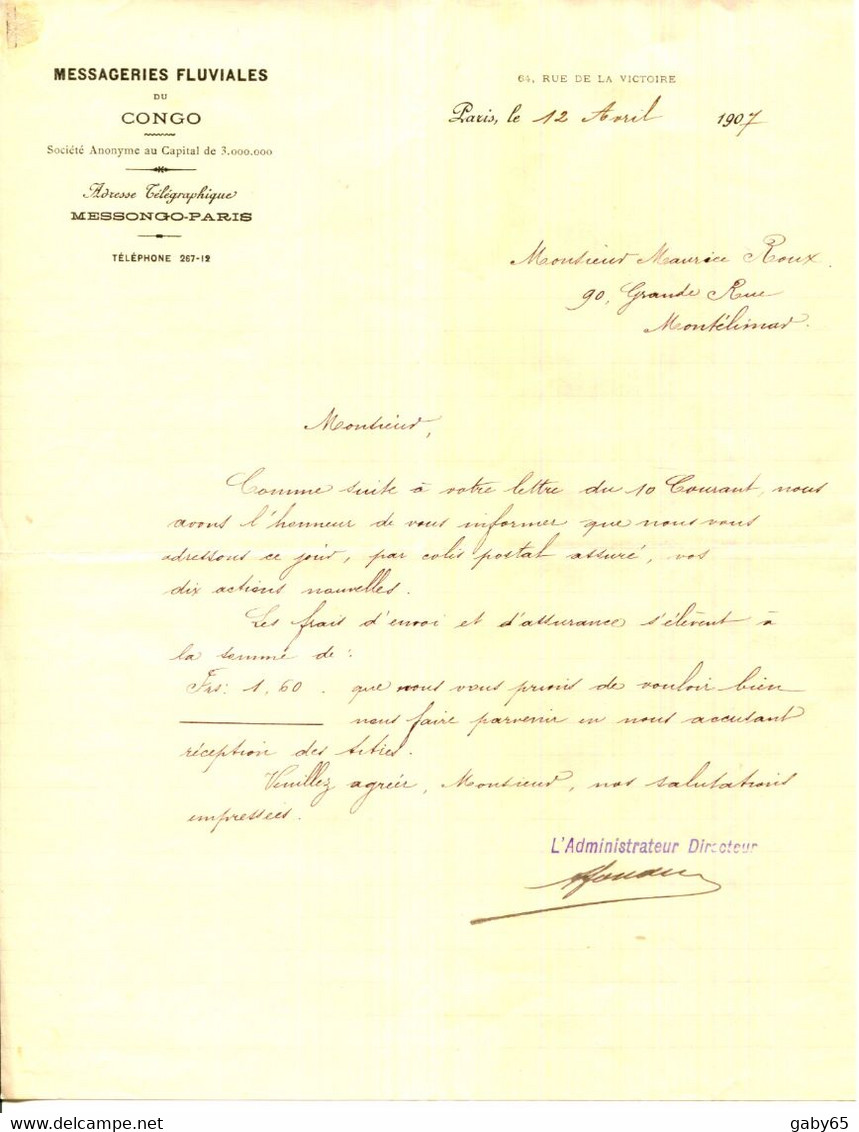 MESSAGERIES FLUVIALES
DU
CONGO
Société Anonyme au Capital de 3.000.000
Adresse Télégraphique
MESSONGO-PARIS
TÉLÉPHONE 267-12
64, RUE DE LA VICTOIRE
Paris, le 12 Avril 1907
Monsieur Maurice Roux.
90, Grande Rue
Montélimar.
Monsieur,
Comme suite à votre lettre du 10 Courant, nous
avons l'honneur de vous informer que nous vous
adressons ce jour, par colis postal assuré, vos
dix actions nouvelles.
Les frais d'envoi et d'assurance s'élèvent à
la somme de :
Frs: 1,60. que nous vous prions de vouloir bien
nous faire parvenir en nous accusant
réception des titres.
Veuillez agréer, Monsieur, nos salutations
empressées.
L'Administrateur Directeur
gaby65